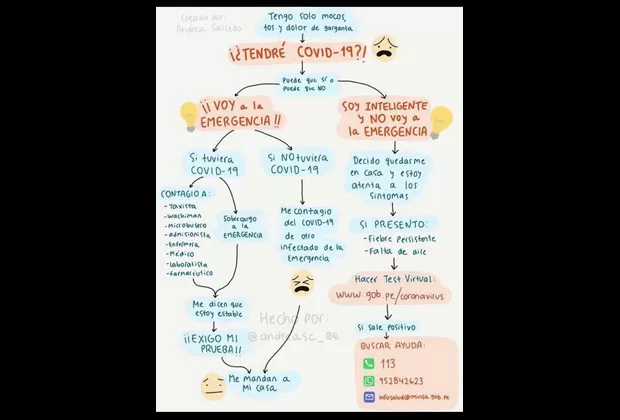 Creado por:
Andrea Salcedo
Tengo solo mocos,
tos y dolor de garganta
¡¿TENDRÉ COVID-19?!
Puede que sí o
puede que NO
¡¡VOY a la
EMERGENCIA!!
SOY INTELIGENTE
y NO voy a
la EMERGENCIA
Si tuviera
COVID-19
Si NO tuviera
COVID-19
Decido quedarme
en casa y estoy
atenta a los
síntomas
CONTAGIO A:
-Taxista
-wachiman
-Microbusero
-admisionista
-Enfermera
-Médico
-Laboratista
-Farmacéutico
Sobrecargo
a la
EMERGENCIA
Me contagio
del COVID-19
de otro
infectado de la
Emergencia
SI PRESENTO:
-Fiebre Persistente
-Falta de aire
Me dicen que
estoy estable
¡¡EXIGO MI
PRUEBA!!
Me mandan a
Mi casa
Hecho por:
@andrea.sc_00
Hacer Test Virtual:
www.gob.pe/coronavirus
Si sale positivo
BUSCAR AYUDA:
113
952842623
infosalud@minsa.gob.pe